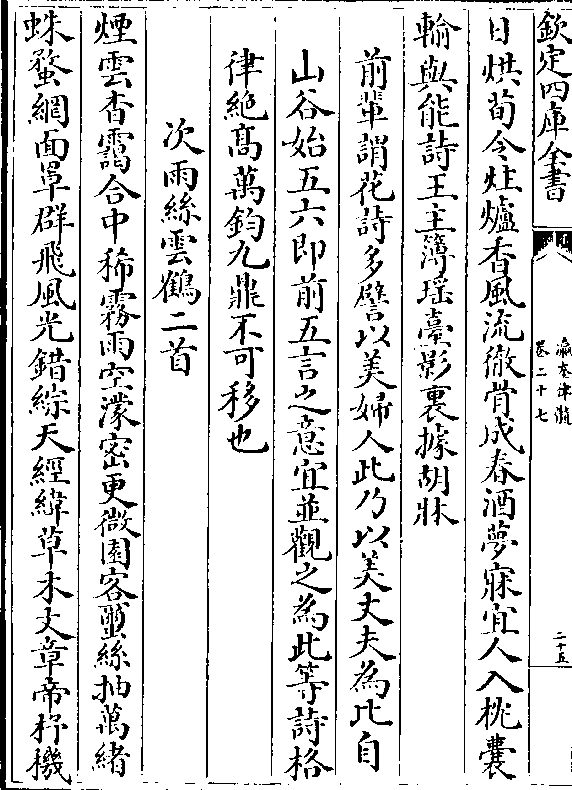 欽定四庫全書
瀛奎律髓
卷二十七
二十五
日烘荀令炷爐香風流徹骨成春酒夢寐宜人入枕囊
輸與能詩王主簿瑶臺影裏據胡牀
前輩謂花詩多譬以美婦人此乃以美丈夫為比自
山谷始五六即前五言之意宜並觀之為此等詩格
律絶髙萬鈞九鼎不可移也
次雨絲雲鶴二首
煙雲杳靄合中稀霧雨空濛密更微園客蠒絲抽萬緒
蛛蝥網面罩群飛風光錯綜天經緯草木文章帝杼機